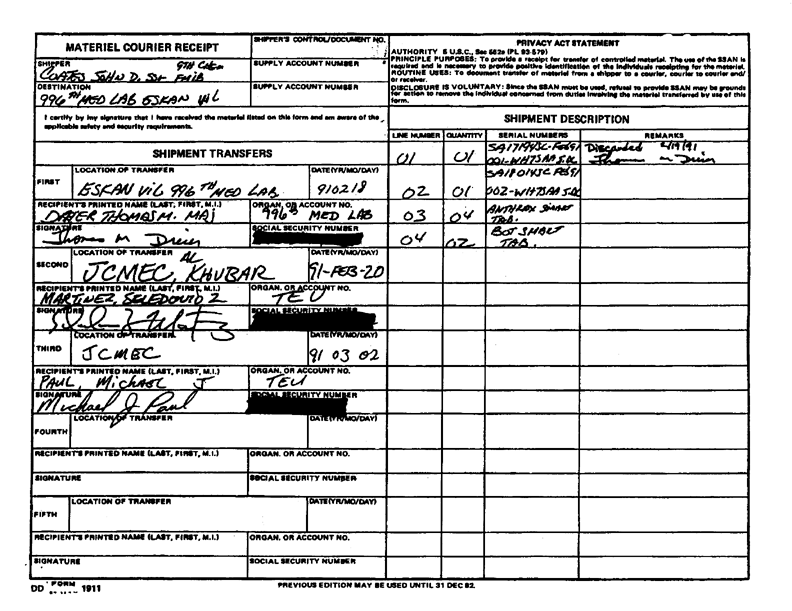 MATERIEL COURIER RECEIPT
SHIPPER'S CONTROL/DOCUMENT NO.
PRIVACY ACT STATEMENT
AUTHORITY 5 U.S.C., Sec 552a (PL 93-579)
PRINCIPLE PURPOSES: To provide a receipt for transfer of controlled material. The use of the SSAN is
required and is necessary to provide positive identification of the individuals receipting for the material.
ROUTINE USES: To document transfer of material from a shipper to a courier, courier to courier and/
or receiver.
DISCLOSURE IS VOLUNTARY: Since the SSAN must be used, refusal to provide SSAN may be grounds
for action to remove the individual concerned from duties involving the material transferred by use of this
form.
SHIPPER 9TH Chem
COATES JOHN D. SSG FMIB
SUPPLY ACCOUNT NUMBER
DESTINATION
996TH MED LAB ESKAN VIL
SUPPLY ACCOUNT NUMBER
I certify by my signature that I have received the material listed on this form and am aware of the
applicable safety and security requirements.
SHIPMENT DESCRIPTION
LINE NUMBER QUANTITY SERIAL NUMBERS REMARKS
SHIPMENT TRANSFERS
01 01
Discarded 4/19/91
Thomas M Drier
FIRST
LOCATION OF TRANSFER DATE (YR/MO/DAY)
ESKAN VIL 996TH MED LAB 910218
02 01
RECIPIENT'S PRINTED NAME (LAST, FIRST, M.I.) ORGAN. OR ACCOUNT NO.
THOMAS M. MAJ 996th MED LAB
03 04 ANTHRAX SMART
TAB.
SIGNATURE SOCIAL SECURITY NUMBER
Thomas M Drier
04 02 BOT SMART
TAB.
SECOND
LOCATION OF TRANSFER DATE (YR/MO/DAY)
JCMEC, AL KHUBAR 91-FEB-20
RECIPIENT'S PRINTED NAME (LAST, FIRST, M.I.) ORGAN. OR ACCOUNT NO.
MARTINEZ, SELEDONIO Z TEU
SIGNATURE SOCIAL SECURITY NUMBER
THIRD
LOCATION OF TRANSFER DATE (YR/MO/DAY)
JCMEC 91 03 02
RECIPIENT'S PRINTED NAME (LAST, FIRST, M.I.) ORGAN. OR ACCOUNT NO.
PAUL, Michael J TEU
SIGNATURE SOCIAL SECURITY NUMBER
Michael J Paul
FOURTH
LOCATION OF TRANSFER DATE (YR/MO/DAY)
RECIPIENT'S PRINTED NAME (LAST, FIRST, M.I.) ORGAN. OR ACCOUNT NO.
SIGNATURE SOCIAL SECURITY NUMBER
FIFTH
LOCATION OF TRANSFER DATE (YR/MO/DAY)
RECIPIENT'S PRINTED NAME (LAST, FIRST, M.I.) ORGAN. OR ACCOUNT NO.
SIGNATURE SOCIAL SECURITY NUMBER
DD FORM 1911 PREVIOUS EDITION MAY BE USED UNTIL 31 DEC 82.